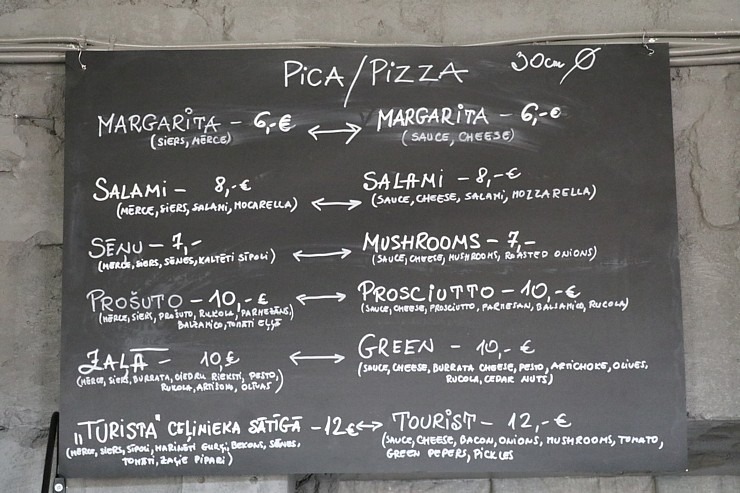 PICA/PIZZA 30cm Ø
MARGARITA – 6,-€ ⟷ MARGARITA – 6,-€
(SIERS, MĒRCE) (SAUCE, CHEESE)
SALAMI – 8,-€ ⟷ SALAMI – 8,-€
(MĒRCE, SIERS, SALAMI, MOCARELLA) (SAUCE, CHEESE, SALAMI, MOZZARELLA)
SĒŅU – 7,- ⟷ MUSHROOMS – 7,-
(MĒRCE, SIERS, SĒNES, KALTĒTI SĪPOLI) (SAUCE, CHEESE, MUSHROOMS, ROASTED ONIONS)
PROŠUTO – 10,-€ ⟷ PROSCIUTTO – 10,-€
(MĒRCE, SIERS, PROŠUTO, RUKOLA, PARMEZĀNS, (SAUCE, CHEESE, PROSCIUTTO, PARMESAN, BALSAMICO, RUCOLA)
BALZAMICO, TOMĀTI EĻĻĀ
ZAĻĀ – 10,€ ⟷ GREEN – 10,-€
(MĒRCE, SIERS, BURRATA, CIEDRU RIEKSTI, PESTO, (SAUCE, CHEESE, BURRATA CHEESE, PESTO, ARTICHOKE, OLIVES,
RUKOLA, ARTIŠOKI, OLĪVAS) RUCOLA, CEDAR NUTS)
„TURISTA" CEĻINIEKA SĀTĪGĀ – 12€ ⟷ TOURIST – 12,-€
(MĒRCE, SIERS, SĪPOLI, MARINĒTI GURĶI, BEKONS, SĒNES, (SAUCE, CHEESE, BACON, ONIONS, MUSHROOMS, TOMATO,
TOMĀTI, ZAĻIE PIPARI) GREEN PEPERS, PICKLES